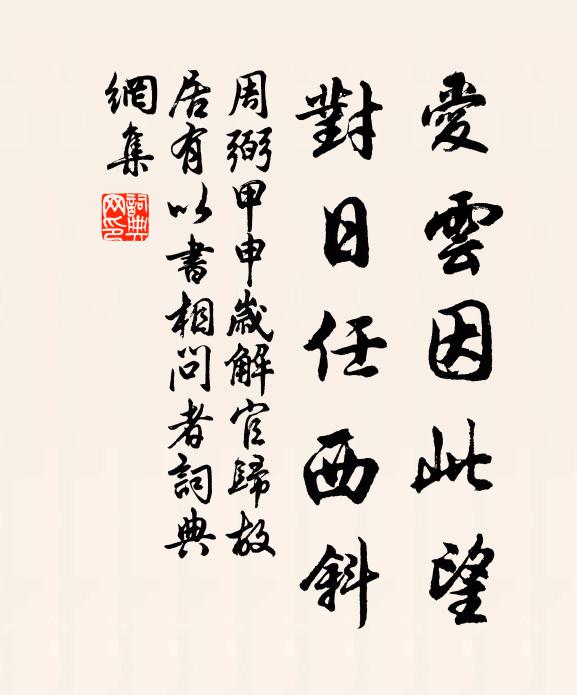 愛雲因此望
對日任西斜
周弼甲申歲解官歸故
居有以書相問者詞典
網集
詞典网印